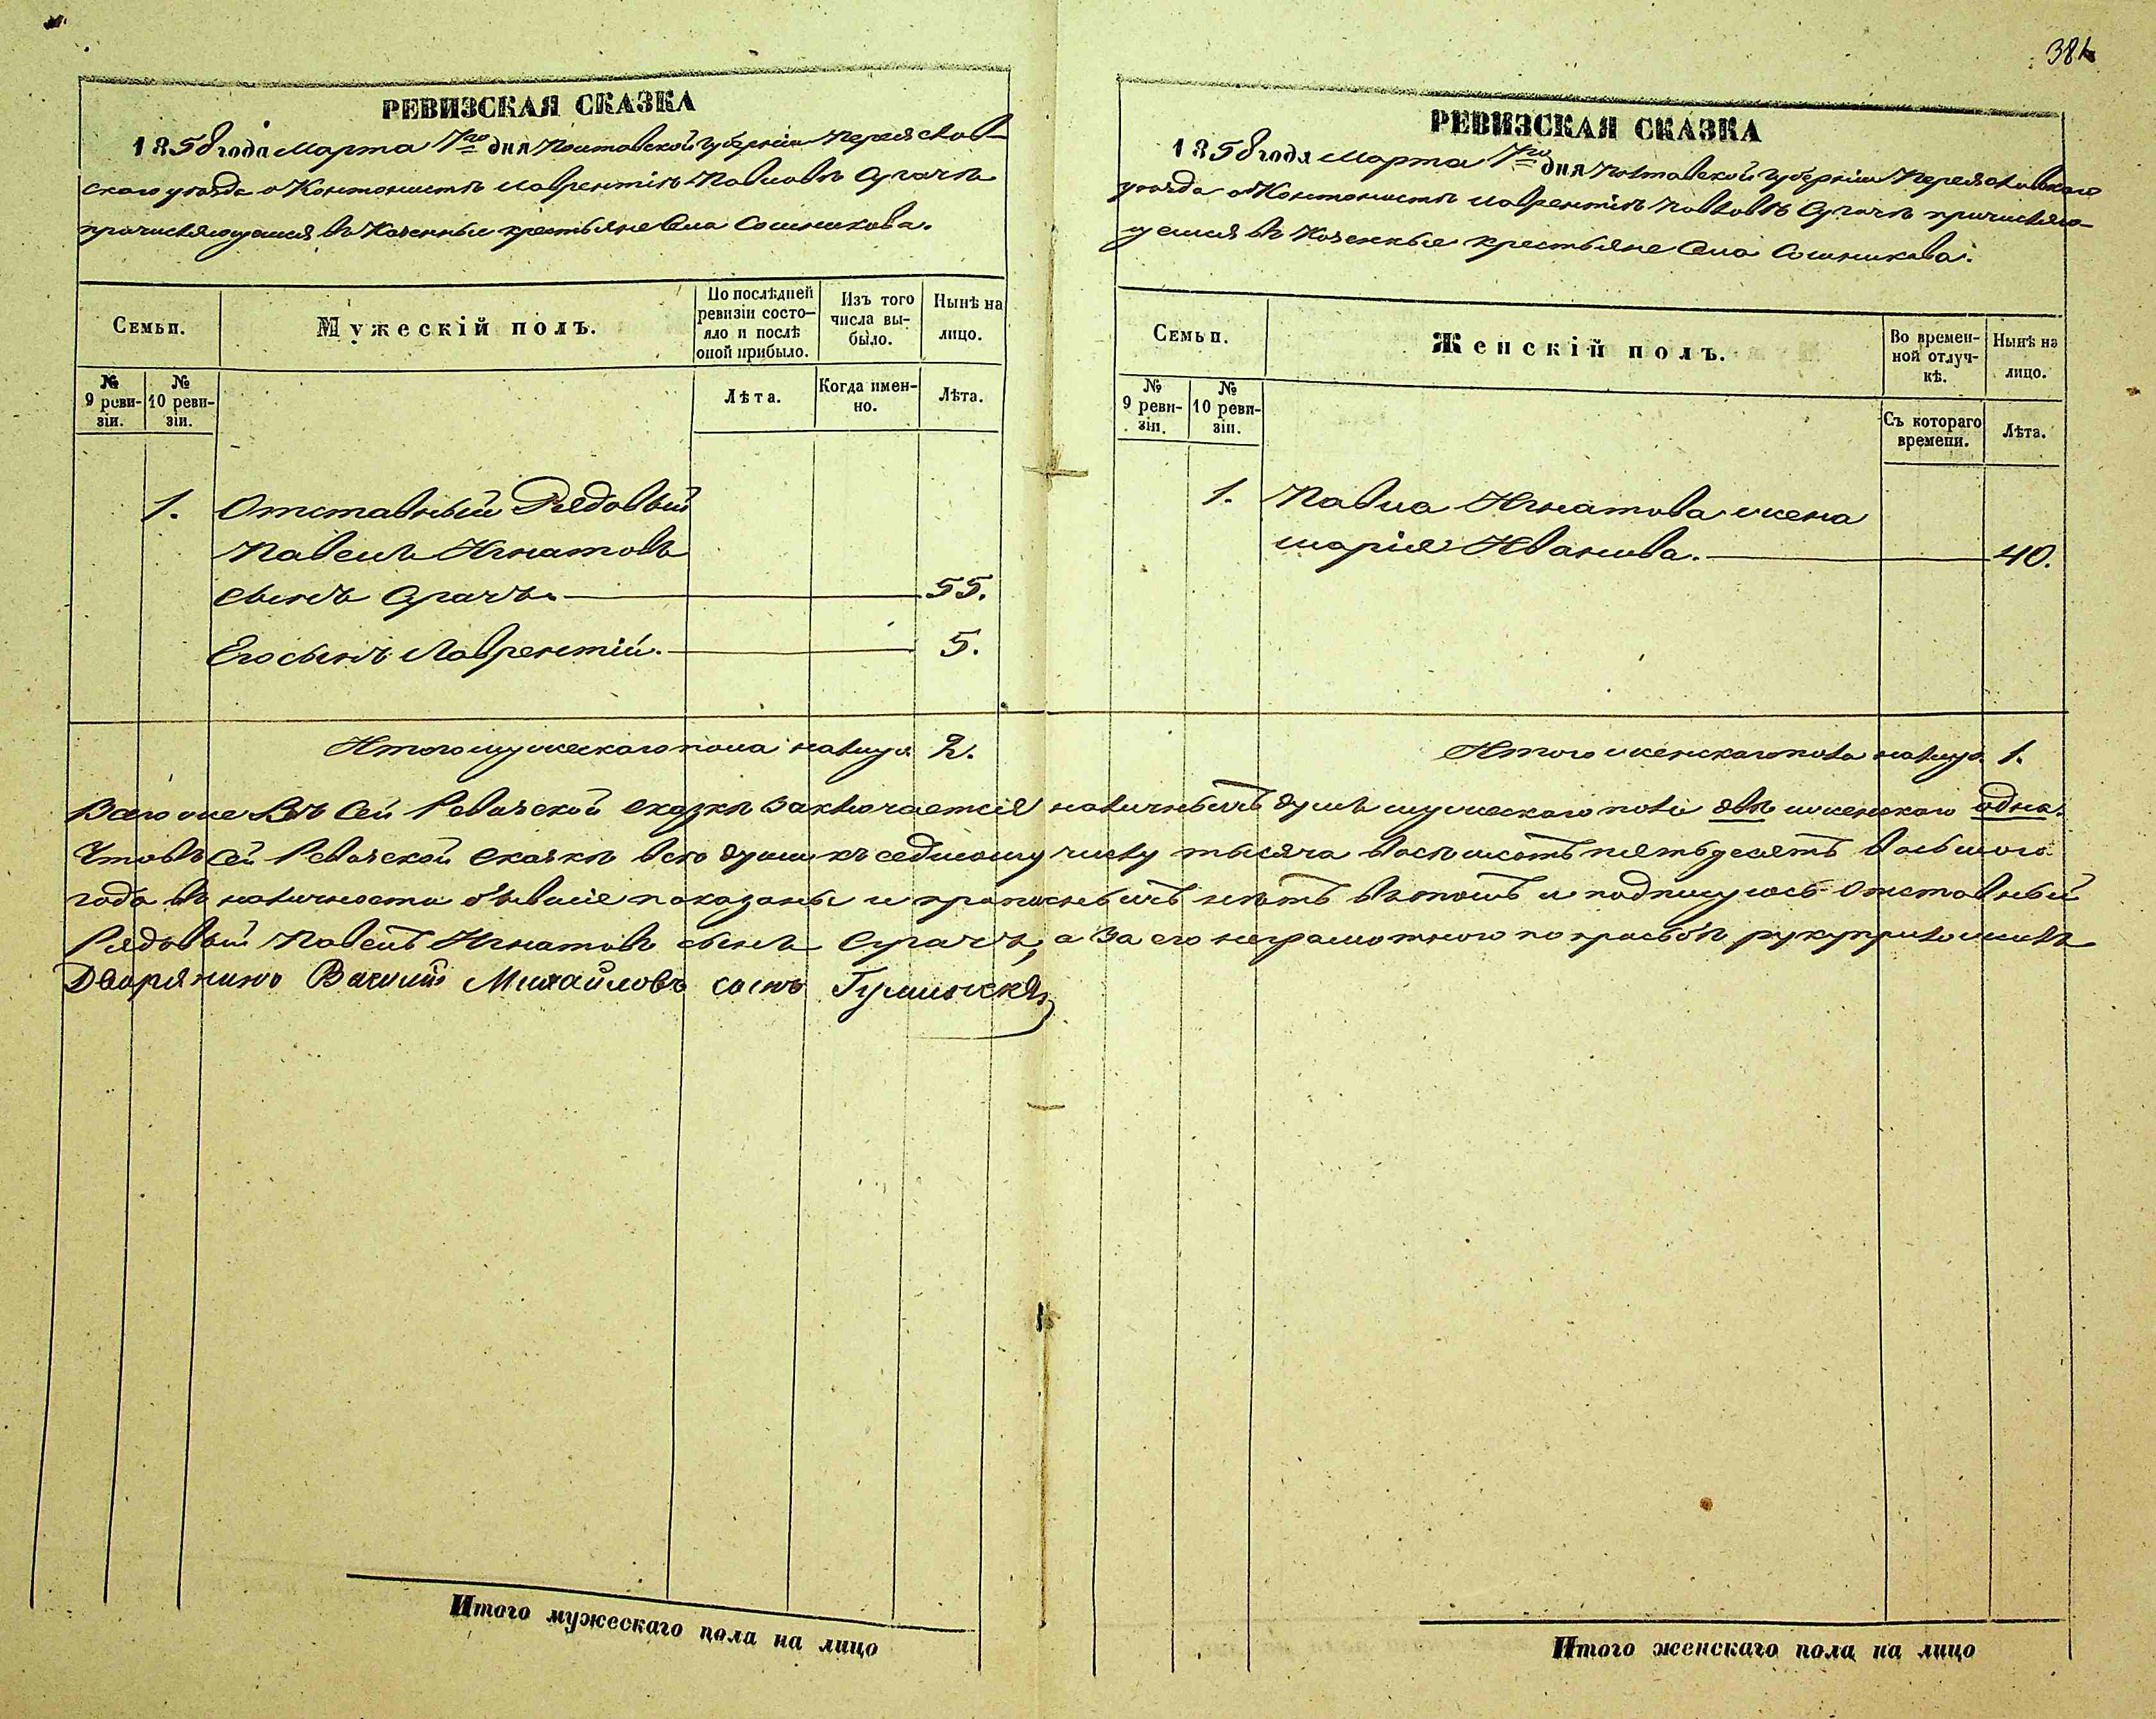 381
РЕВИЗСКАЯ СКАЗКА
1858 года Марта 7го дня Полтавской Губерніи Переяслов-
скаго уезда о Кантонистѣ Лаврентіѣ Павловѣ Сугачѣ
причисляющемся въ Казенные крестьяне Села Сошникова.
Семьи.
Мужескій полъ.
По послѣдней ревизіи состо-
яло и послѣ оной прибыло.
Изъ того числа вы-
было.
Нынѣ на лицо.
№ 9 реви-
зіи.
№ 10 реви-
зіи.
Лѣта.
Когда имен-
но.
Лѣта.
1. Отставный Рядовый
Павелъ Игнатовъ
сынъ Сугачъ. 55.
Его сынъ Лаврентій. 5.
Итого мужескаго пола налицо 2.
РЕВИЗСКАЯ СКАЗКА
1858 года Марта 7го дня Полтавской Губерніи Переясловскаго
уезда о Кантонистѣ Лаврентіѣ Павловѣ Сугачѣ причисляю-
щемся въ Казенные крестьяне Села Сошникова.
Семьи.
Женскій полъ.
Во времен-
ной отлуч-
кѣ.
Нынѣ на лицо.
№ 9 реви-
зіи.
№ 10 реви-
зіи.
Съ котораго времени.
Лѣта.
1. Павла Игнатова жена
Марія Иванова. 40.
Итого женскаго пола налицо 1.
Всего же Въ Сей Ревизской сказкѣ заключается наличныхъ душъ мужескаго пола двѣ и женскаго одна.
Что въ Сей Ревизской Сказкѣ всѣ души къ седьмому числу тысяча восемьсотъ пятьдесятъ восьмого
года въ наличности бывшіе показаны и прописныхъ нѣтъ въ томъ и подпишусь Отставный
Рядовый Павелъ Игнатовъ сынъ Сугачъ, а За его неграмотного по прозьбѣ руку приложилъ
Дворянинъ Василий Михайловъ сынъ
Итого мужескаго пола на лицо
Итого женскаго пола на лицо